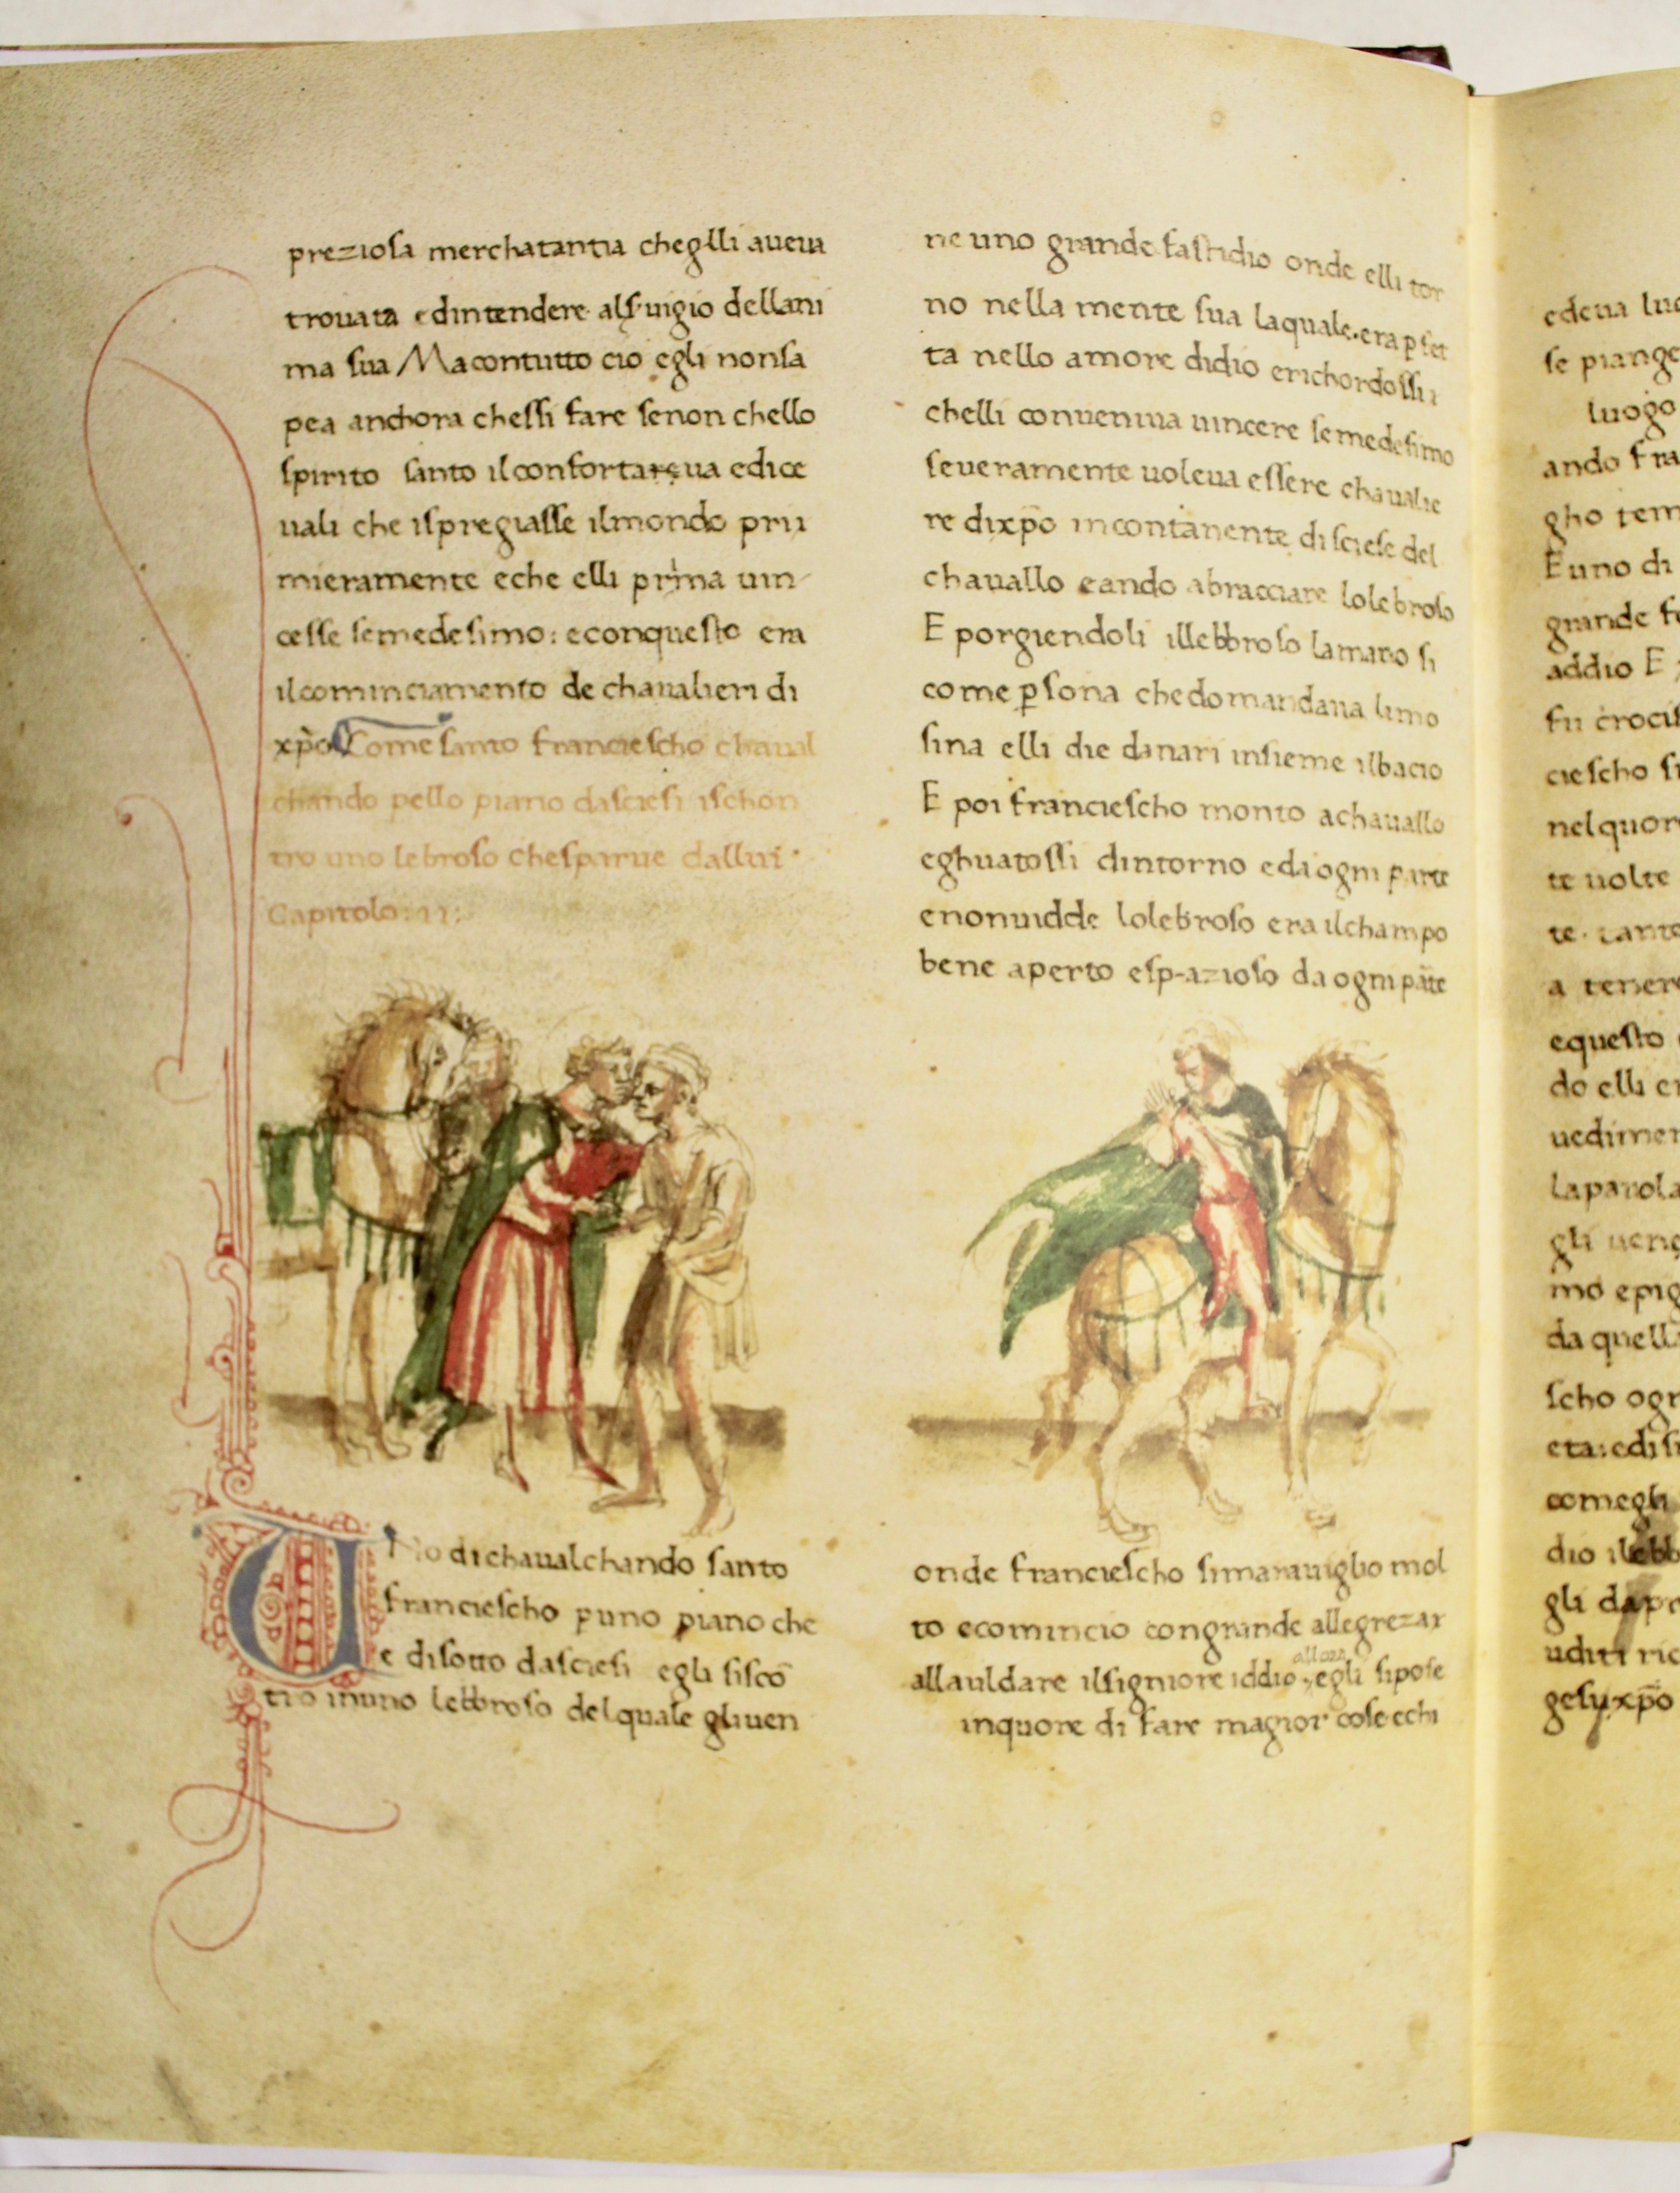 preziosa merchatantia cheglli aueua
trouata edintendere als̃uigio dellani
ma sua Macontutto cio egli nonsa
pea anchora chessi fare senon chello
spirito santo ilconfortaua edice
uali che ispregiasse ilmondo pri
mieramente eche elli prima uin
cesse semedesimo: econquesto era
ilcominciamento de chaualieri di
xp̃o Come santo franciescho chaual
chando pello piano dasciesi ischon
tro uno lebroso chesparue dallui
Capitolo: 11:
Uno dichaualchando santo
franciescho p uno piano che
e disotto dasciesi egli siscõ
tro inuno lebbroso delquale gliuen
ne uno grande fastidio onde elli tor
no nella mente sua laquale era p̱fet
ta nello amore didio erichordossi
chelli conueniua uincere semedesimo
seueramente uoleua essere chaualie
re dixp̃o incontanente disciese del
chauallo eando abracciare lolebroso
E porgiendoli illebbroso lamano si
come p̱sona chedomandaua limo
sina elli die danari insieme ilbacio
E poi franciescho monto achauallo
eghuatossi dintorno edaogni parte
enonuidde lolebroso era ilchampo
bene aperto espazioso daogni parte
onde franciescho simarauiglio mol
to ecomincio congrande allegreza
allauldare ilsigniore iddio egli sipose
inquore di fare magior cose echi
edeua
se piange
luogo
ando fra
gho tem
E uno di
grande
addio E
fu crocif
ciescho
nelquor
te uolte
te
a tener
equesto
do elli
uedimen
laparola
gli
mo
da quell
scho ogn
eta edi
comegli
dio
gli
uditi
gesu xp̃o